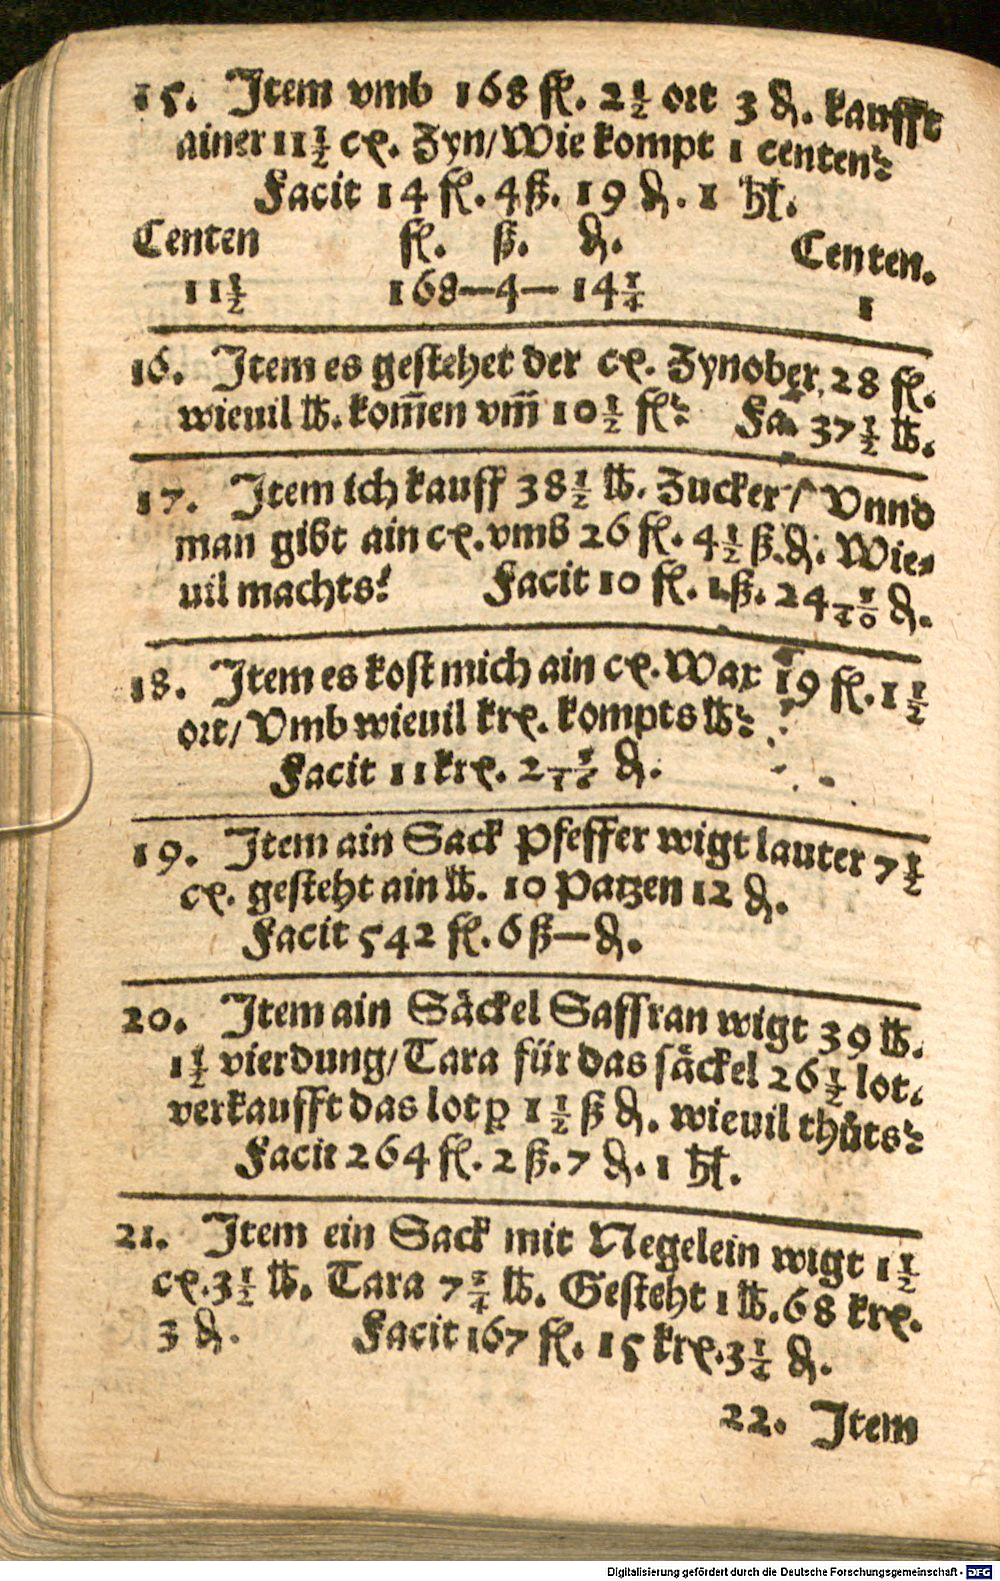 15. Item vmb 168 fl. 2½ ort 3 ₰. kaufft
ainer 11½ cꝫ. Zyn/Wie kompt 1 centen?
Facit 14 fl. 4 ß. 19 ₰. 1 hl.
Centen fl. ß. ₰. Centen.
11½ 168—4—14¼ 1
16. Item es gestehet der cꝫ. Zynober 28 fl.
wieuil ℔. kom̄en vm̄ 10½ fl? Fa. 37½ ℔.
17. Item ich kauff 38½ ℔. Zucker/ Vnnd
man gibt ain cꝫ. vmb 26 fl. 4½ ß.₰. Wie-
uil machts? Facit 10 fl. 1 ß. 24 1/40 ₰.
18. Item es kost mich ain cꝫ. Wax 19 fl. 1½
ort/ Vmb wieuil krꝫ. kompts ℔?
Facit 11 krꝫ. 2 ₰.
19. Item ain Sack Pfeffer wigt lauter 7½
cꝫ. gesteht ain ℔. 10 Patzen 12 ₰.
Facit 542 fl. 6 ß—₰.
20. Item ain Säckel Saffran wigt 39 ℔.
1½ vierdung/Tara für das säckel 26½ lot.
verkaufft das lot ꝑ 1½ ß ₰. wieuil thůts?
Facit 264 fl. 2 ß. 7 ₰. 1 hl.
21. Item ein Sack mit Negelein wigt 1½
cꝫ. 3½ ℔. Tara 7¾ ℔. Gesteht 1 ℔. 68 krꝫ.
3 ₰. Facit 167 fl. 15 krꝫ. 3¼ ₰.
22. Item
Digitalisierung gefördert durch die Deutsche Forschungsgemeinschaft - DFG